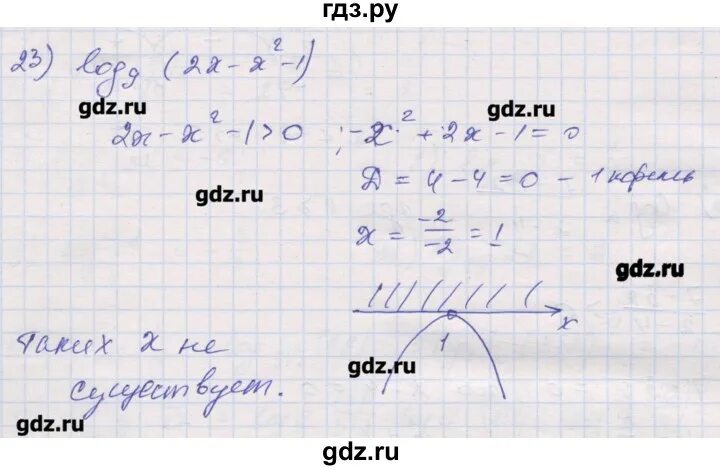 гдз.ру
23) log₉ (2x - x² - 1)
gdz.ru
gdz.ru
2x - x² - 1 > 0 ; -x² + 2x - 1 = 0
gdz.ru
Д = 4 - 4 = 0 - 1 корень
x = -2/-2 = 1
gdz.ru
x
1
Таких x не
gdz.ru
существует.
gdz.ru
gdz.ru